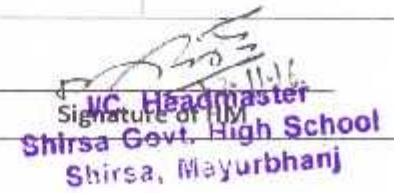 Signature of HM
I/C. Headmaster
Shirsa Govt. High School
Shirsa, Mayurbhanj